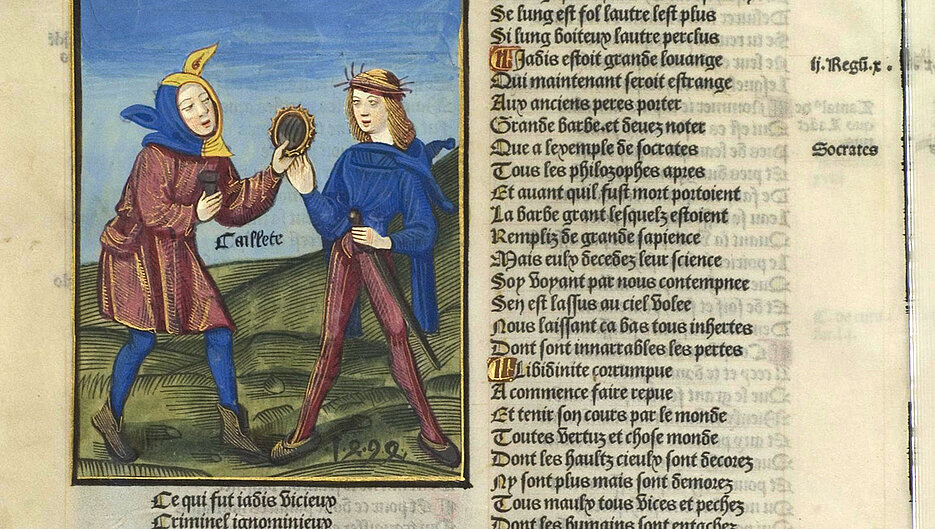 Caillete
Ce qui fut iadis vicieux
Criminel ignominieux
Se lung est fol lautre lest plus
Si lung boiteux lautre perclus
Jadis estoit grande louange
Qui maintenant seroit estrange
Aux anciens peres porter
Grande barbe. et deuez noter
Que a lexemple de socrates
Tous les philozophes apres
Et auant quil fust mort portoient
La barbe grant lesquelz estoient
Rempliz de grande sapience
Mais eulx decedez leur science
Soy voyant par nous contempnee
Sen est lassus au ciel volee
Nous laissant ca bas tous inhertes
Dont sont innarrables les pertes
Libidinite corrumpue
A commence faire repue
Et tenir son cours par le monde
Toutes vertuz et chose monde
Dont les haultz cieulx sont decorez
Ny sont plus mais sont demorez
Tous maulx tous vices et pechez
Dont les humains sont entachez
ij. Regũ. x.
Socrates